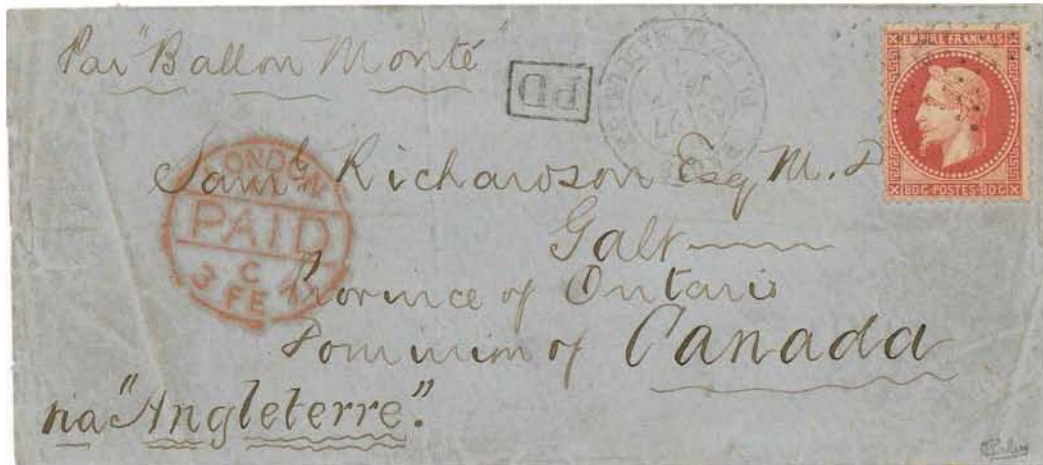 Par "Ballon Monté"
PD
EMPIRE FRANÇAIS
80 C · POSTES · 80 C
LONDON
PAID
C
3 FE 7
Saml. Richardson Esq M.D
Galt
Province of Ontario
Dominion of Canada
via "Angleterre".